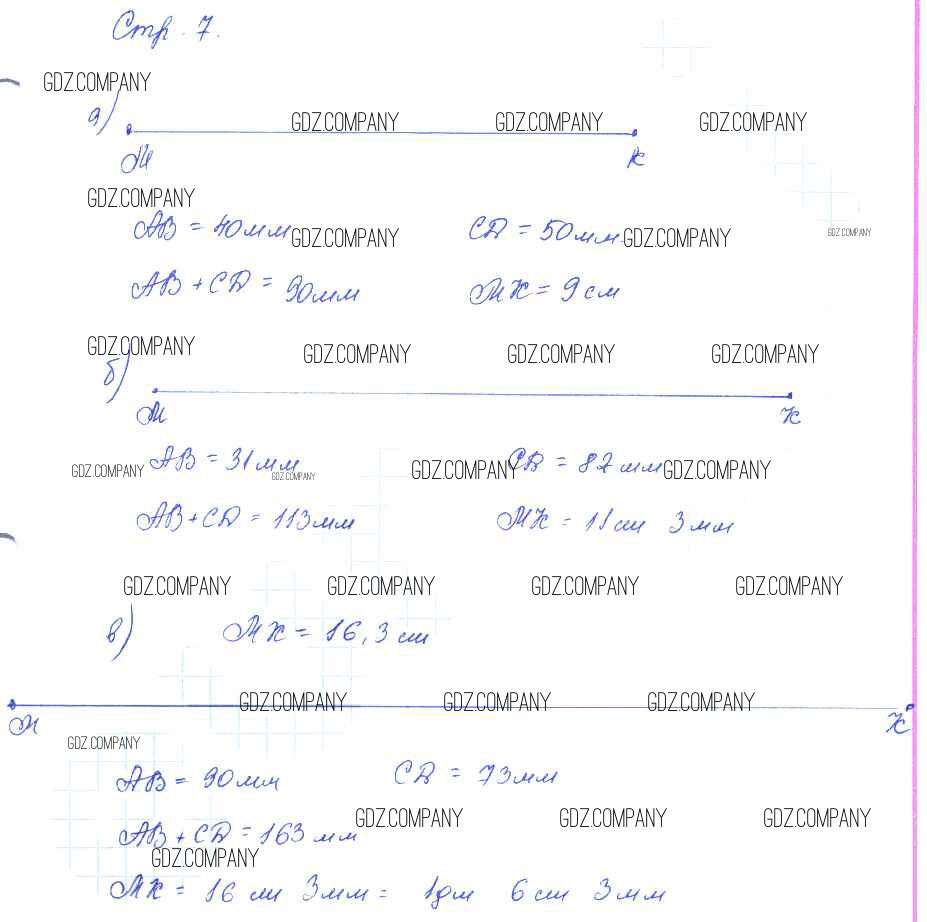 Стр. 7.
GDZ.COMPANY
а)
GDZ.COMPANY GDZ.COMPANY GDZ.COMPANY
М К
GDZ.COMPANY
AB = 40мм GDZ.COMPANY CD = 50мм. GDZ.COMPANY GDZ.COMPANY
AB + CD = 90мм МК = 9 см
GDZ.COMPANY GDZ.COMPANY GDZ.COMPANY GDZ.COMPANY
б)
М К
GDZ.COMPANY AB = 31мм GDZ.COMPANY GDZ.COMPANY CD = 82 мм GDZ.COMPANY
AB + CD = 113мм МК = 11см 3мм
GDZ.COMPANY GDZ.COMPANY GDZ.COMPANY GDZ.COMPANY
в) МК = 16,3 см
GDZ.COMPANY GDZ.COMPANY GDZ.COMPANY
М К
GDZ.COMPANY
AB = 90мм CD = 73мм
GDZ.COMPANY GDZ.COMPANY GDZ.COMPANY
AB + CD = 163 мм
GDZ.COMPANY
МК = 16 см 3мм = 1дм 6см 3мм